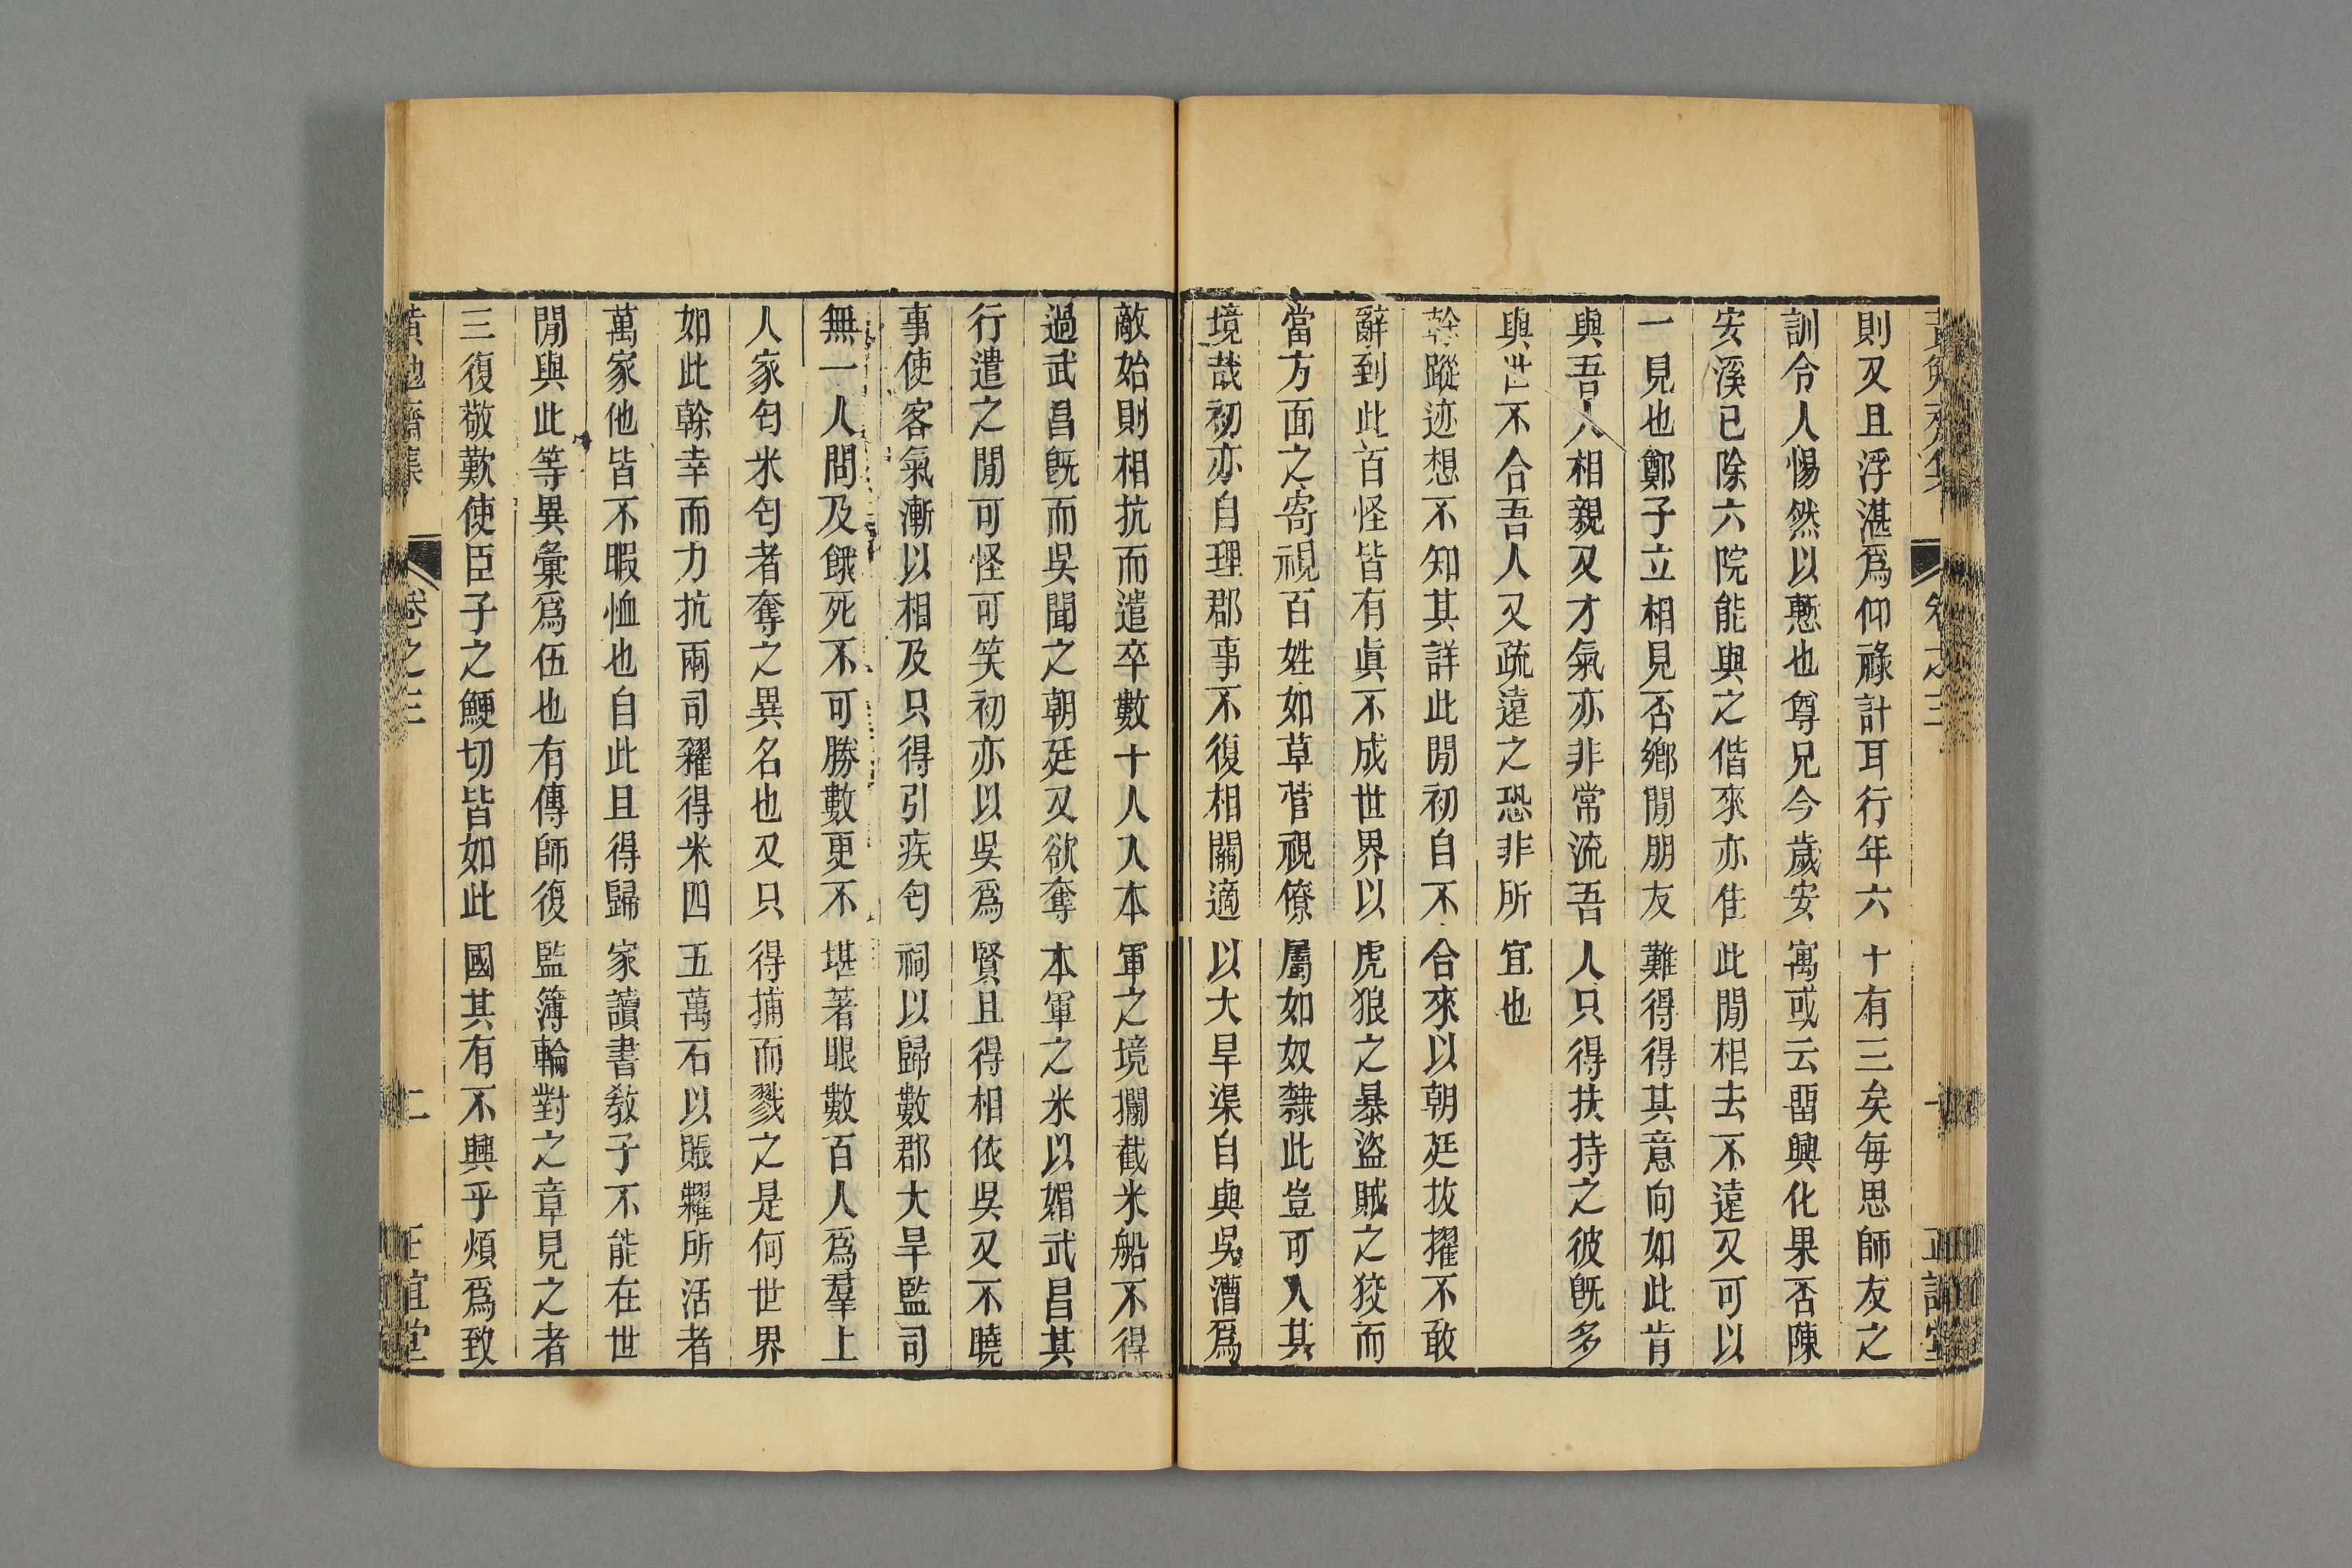 則又且浮湛爲仰祿計耳行年六十有三矣每思師友之
訓令人惕然以懣也尊兄今歲安寓或云畱興化果否陳
安溪已除六院能與之偕來亦佳此閒相去不遠又可以
一見也鄭子立相見否鄉閒朋友難得得其意向如此肯
與吾人相親又才氣亦非常流吾人只得扶持之彼旣多
與世不合吾人又疏遠之恐非所宜也
榦蹤迹想不知其詳此閒初自不合來以朝廷拔擢不敢
辭到此百怪皆有眞不成世界以虎狼之暴盜賊之狡而
當方面之寄視百姓如草菅視僚屬如奴隸此豈可入其
境哉初亦自理郡事不復相關適以大旱渠自與吳漕爲
敵始則相抗而遣卒數十人入本軍之境攔截米船不得
過武昌旣而吳聞之朝廷又欲奪本軍之米以媚武昌其
行遣之閒可怪可笑初亦以吳爲賢且得相依吳又不曉
事使客氣漸以相及只得引疾匄祠以歸數郡大旱監司
無一人問及餓死不可勝數更不堪著眼數百人爲羣上
人家匄米匄者奪之異名也又只得捕而戮之是何世界
如此榦幸而力抗兩司糴得米四五萬石以賑糶所活者
萬家他皆不暇恤也自此且得歸家讀書敎子不能在世
閒與此等異彙爲伍也有傳師復監簿輪對之章見之者
三復敬歎使臣子之鯁切皆如此國其有不興乎煩爲致
卷之三
二
正誼堂